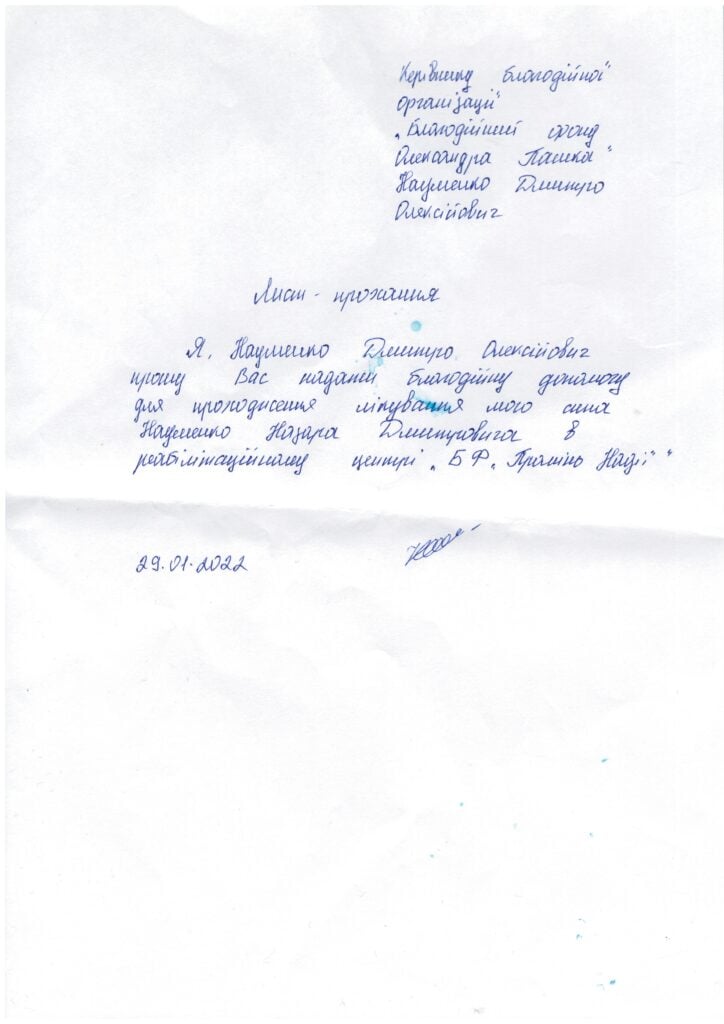 Керівнику благодійної
організації
„Благодійний фонд
Олександра Пашка"
Науменко Дмитро
Олексійович
Лист - прохання
Я, Науменко Дмитро Олексійович
прошу Вас надати благодійну допомогу
для проходження лікування мого сина
Науменко Назара Дмитровича в
реабілітаційному центрі „БФ „Промінь Надії""
29.01.2022